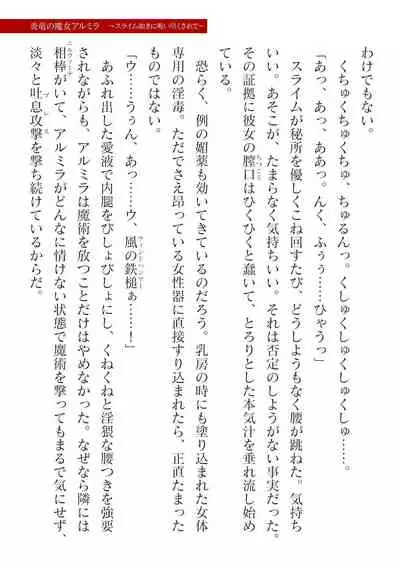 炎竜の魔女アルミラ ～スライム如きに喰い尽くされて～
わけでもない。
くちゅくちゅくちゅ、ちゅるんっ。くしゅくしゅくしゅくしゅ……。
「あっ、あっ、ああっ。んく、ふぅぅ……ひゃうっ」
スライムが秘所を優しくこね回すたび、どうしようもなく腰が跳ねた。気持ち
いい。あそこが、たまらなく気持ちいい。それは否定のしようがない事実だった。
その証拠に彼女の膣口はひくひくと蠢いて、とろりとした本気汁を垂れ流し始め
ている。
恐らく、例の媚薬も効いてきているのだろう。乳房の時にも塗り込まれた女体
専用の淫毒。ただでさえ昂っている女性器に直接すり込まれたら、正直たまった
ものではない。
「ウ……うぅん、あっ……ウ、風の鉄槌ぁ……！」
あふれ出した愛液で内腿をびしょびしょにし、くねくねと淫猥な腰つきを強要
されながらも、アルミラは魔術を放つことだけはやめなかった。なぜなら隣には
相棒がいて、アルミラがどんなに情けない状態で魔術を撃ってもまるで気にせず、
淡々と吐息攻撃を撃ち続けているからだ。